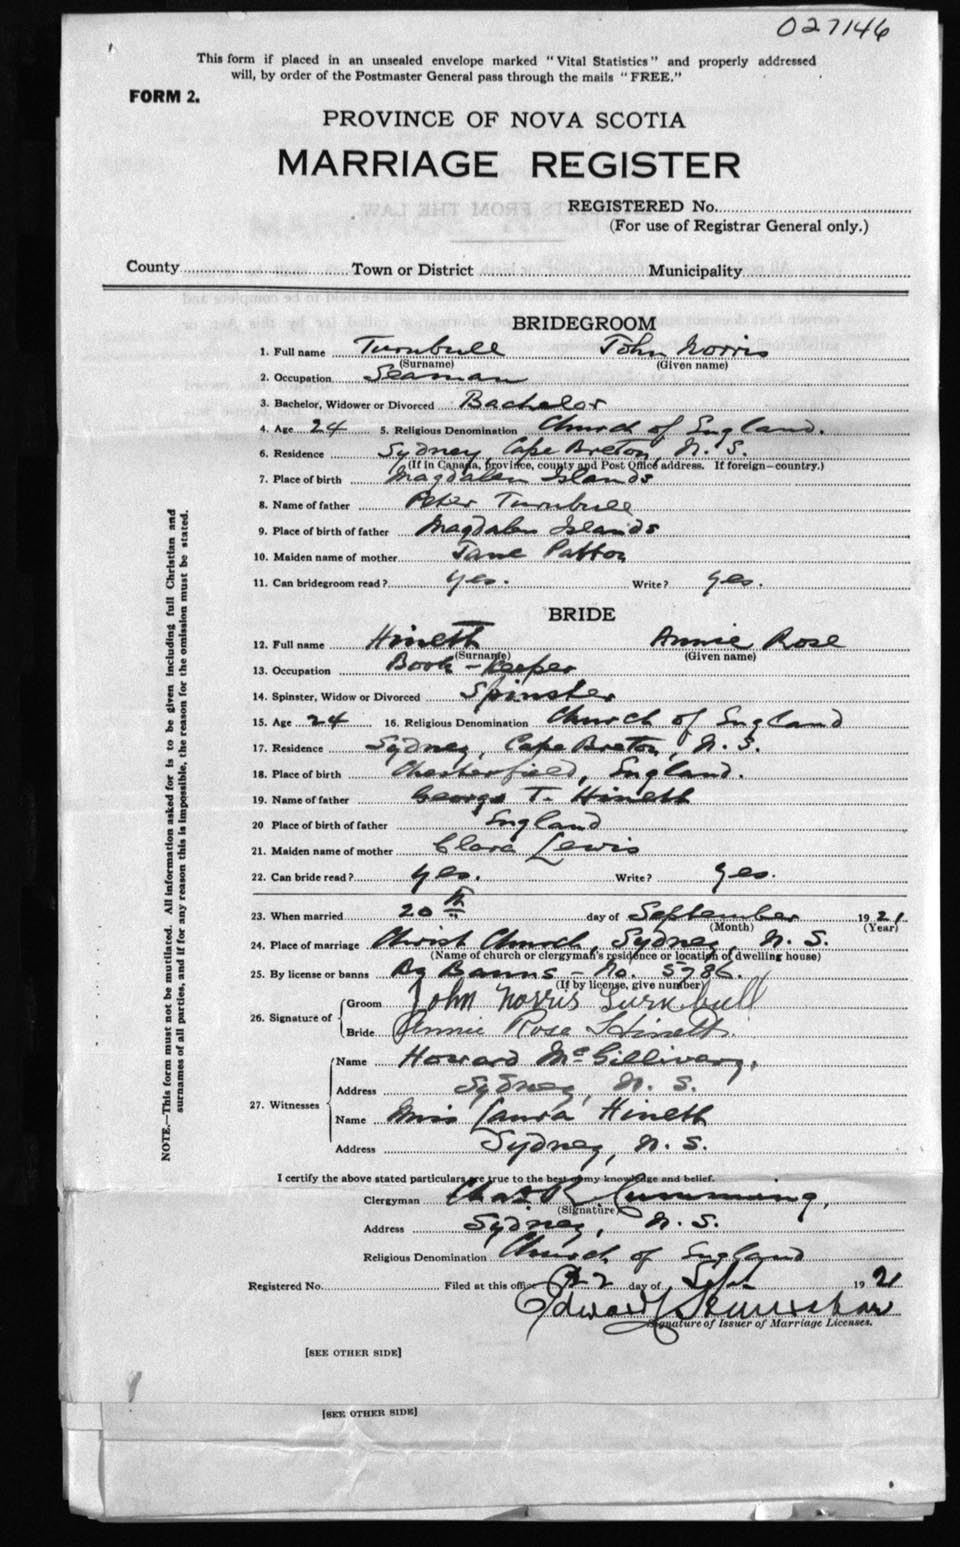 027146
This form if placed in an unsealed envelope marked "Vital Statistics" and properly addressed
will, by order of the Postmaster General pass through the mails "FREE."
FORM 2.
PROVINCE OF NOVA SCOTIA
MARRIAGE REGISTER
REGISTERED No.
(For use of Registrar General only.)
County Town or District Municipality
BRIDEGROOM
1. Full name Turnbull John Norris
(Surname) (Given name)
2. Occupation Seaman
3. Bachelor, Widower or Divorced Bachelor
4. Age 24 5. Religious Denomination Church of England.
6. Residence Sydney, Cape Breton, N. S.
(If in Canada, province, county and Post Office address. If foreign—country.)
7. Place of birth Magdalen Islands
8. Name of father Peter Turnbull
9. Place of birth of father Magdalen Islands
10. Maiden name of mother Jane Patton
11. Can bridegroom read? Yes. Write? Yes.
BRIDE
12. Full name Hineth Annie Rose
(Surname) (Given name)
13. Occupation Book-keeper
14. Spinster, Widow or Divorced Spinster
15. Age 24 16. Religious Denomination Church of England
17. Residence Sydney, Cape Breton, N. S.
18. Place of birth Chesterfield, England.
19. Name of father George T. Hineth
20 Place of birth of father England
21. Maiden name of mother Clara Lewis
22. Can bride read? Yes. Write? Yes.
23. When married 20th day of September 1921
(Month) (Year)
24. Place of marriage Christ Church, Sydney, N. S.
(Name of church or clergyman's residence or location of dwelling house)
25. By license or banns By Banns - No. 5786.
(If by license, give number)
26. Signature of
Groom John Norris Turnbull
Bride Annie Rose Hineth.
27. Witnesses
Name Howard McGillivary,
Address Sydney, N. S.
Name Miss Laura Hineth
Address Sydney, N. S.
I certify the above stated particulars are true to the best of my knowledge and belief.
Clergyman Chas R Cumming,
(Signature)
Address Sydney, N. S.
Religious Denomination Church of England
Registered No. Filed at this office 22 day of Sept 1921
Edward
Signature of Issuer of Marriage Licenses.
[SEE OTHER SIDE]
[SEE OTHER SIDE]
NOTE.—This form must not be mutilated. All information asked for is to be given including full Christian and
surnames of all parties, and if for any reason this is impossible, the reason for the omission must be stated.